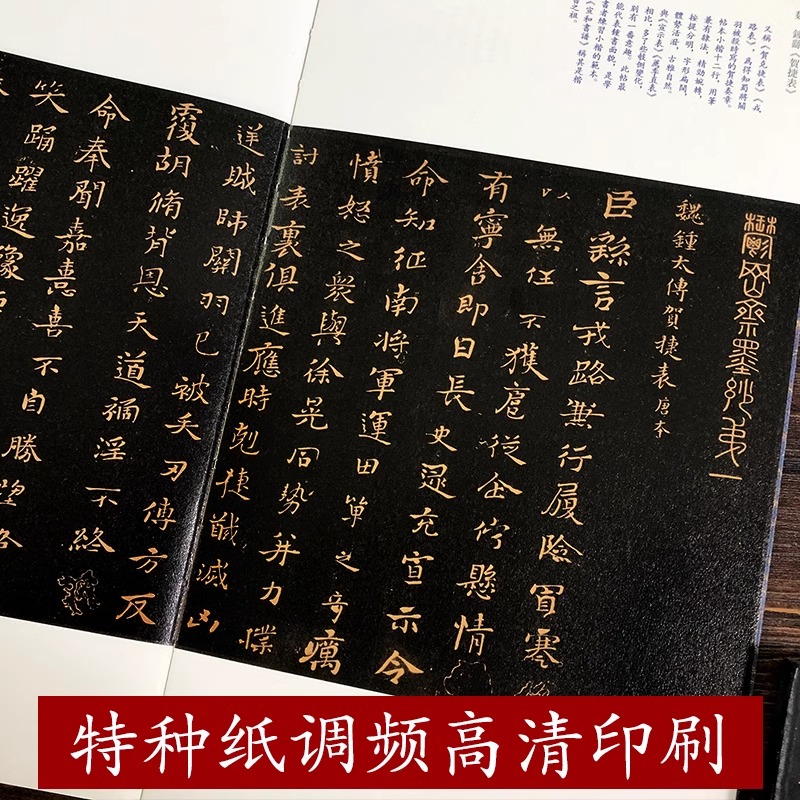 魏 鍾繇《賀捷表》
又稱《賀克捷表》《戎
路表》,為得知蜀將關
羽被殺時寫的賀捷奏章。
帖本小楷十二行,用筆
兼有隸法,精勁婉轉,
按提分明,字形扁闊,
體勢活潑,古雅自然。
與《宣示表》《薦季直表》
相比,多了些欹側變化,
別有一番意趣。此帖最
能代表鍾書面貌,是學
書者練習小楷的範本。
《宣和書譜》稱其是楷
書之祖。
鬱岡齋墨妙第一
魏鍾太傅賀捷表唐本
臣繇言戎路兼行履險冒寒
以無任不獲扈從企佇懸情
有寧舍即日長史逯充宣示令
命知征南將軍運田單之奇厲
憤怒之眾與徐晃同勢并力撲
討表裏俱進應時剋捷馘滅凶
逆賊帥關羽已被矢刃傅方反
覆胡脩背恩天道禍淫不終
命奉聞嘉憙喜不自勝望路
笑踊躍逸豫
特种纸调频高清印刷